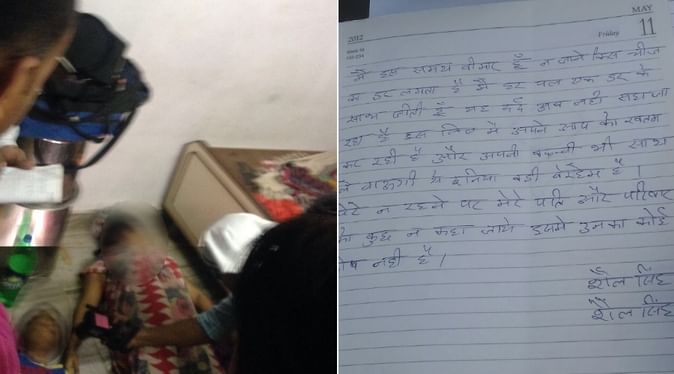 MAY
2012
Friday
11
मैं इस समय बीमार हूँ न जाने किस चीज
का डर लगता है मैं हर पल एक डर के
साथ जीती हूँ यह दर्द अब नही सहा जा
रहा है इस लिए मैं अपने आप को खतम
कर रही हूँ और अपनी बच्ची को भी साथ
ले जाऊगी ये दुनिया बडी बेरहम है।
मेरे न रहने पर मेरे पति और परिवार
को कुछ न कहा जाये इसमे उनका कोई
दोष नही है।
शैल सिंह
शैल सिंह